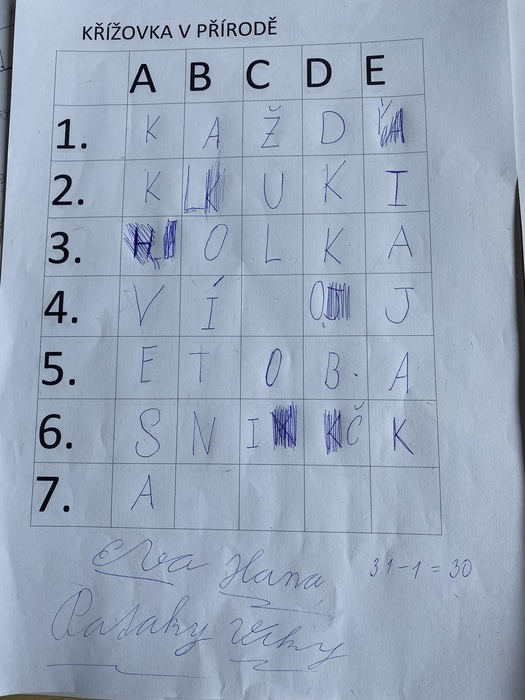 KŘÍŽOVKA V PŘÍRODĚ
A B C D E
1. K A Ž D
2. K L U K I
3. H O L K A
4. V Í O J
5. E T O B. A
6. S N I Č K
7. A
Eva Hana 31-1=30